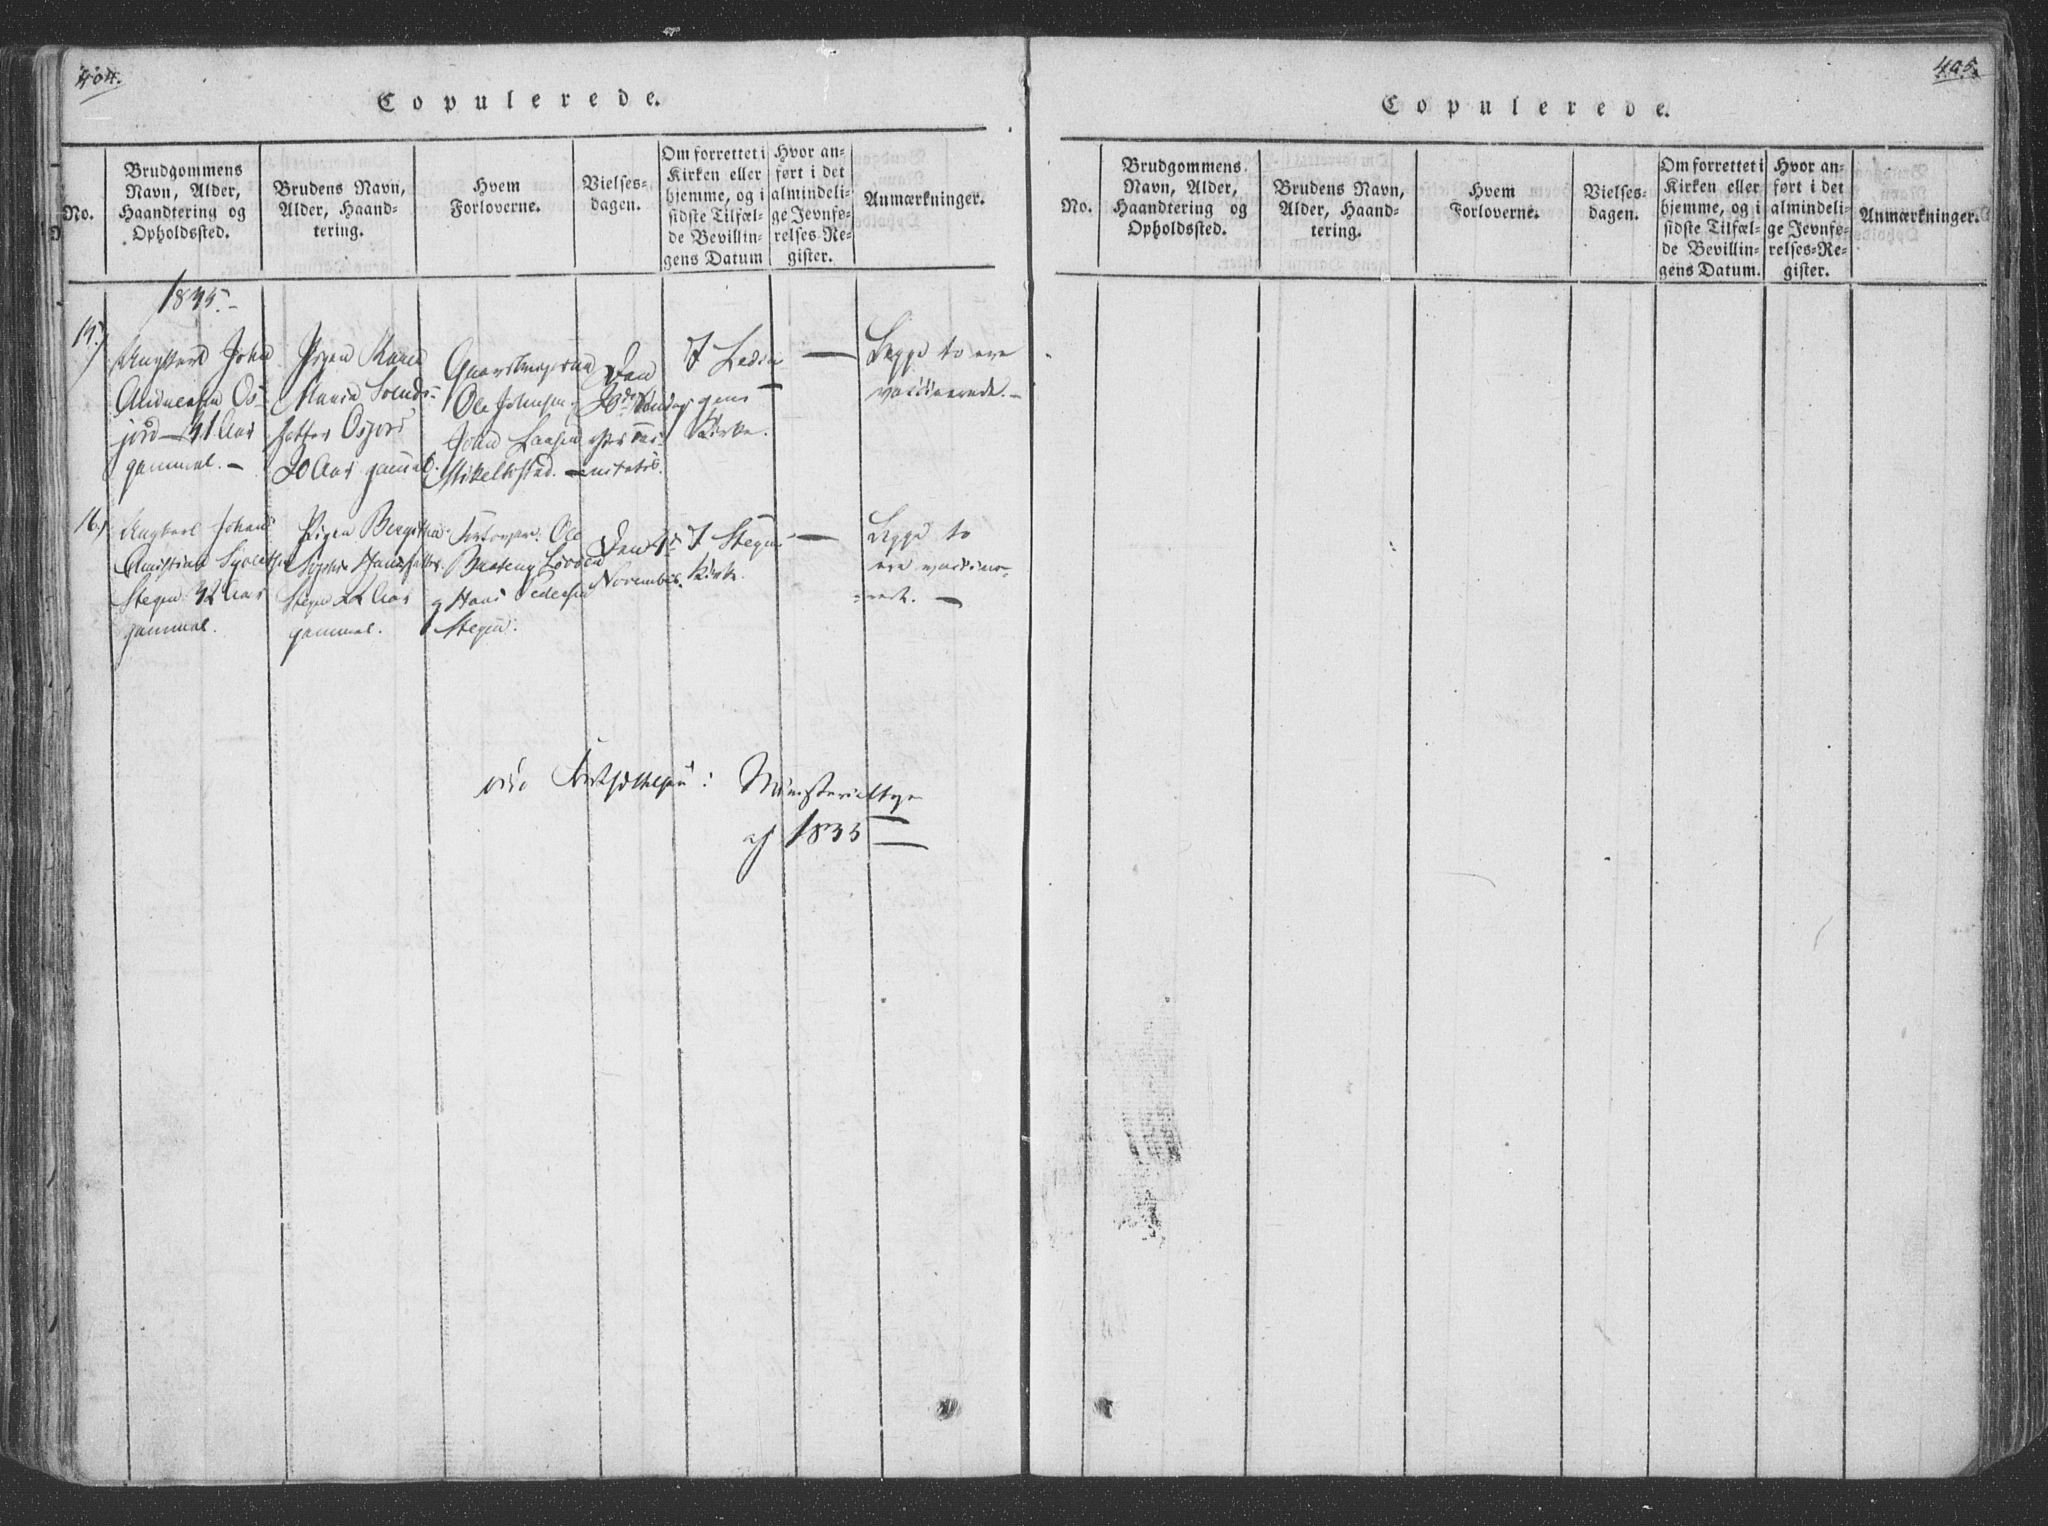 404.
Copulerede.
No.
Brudgommens
Navn, Alder,
Haandtering og
Opholdssted.
Brudens Navn,
Alder, Haand-
tering.
Hvem
Forloverne.
Vielses-
dagen.
Om forrettet i
Kirken eller
hjemme, og i
sidste Tilfæl-
de Bevillin-
gens Datum
Hvor an-
ført i det
almindeli-
ge Jevnfø-
relses-Re-
gister.
Anmærkninger.
1835.
15.)
Ungkarl John
Andreasen Os-
jord 31 Aar
gammel.
Pigen Karen
Maria
datter Osjord
20 Aar gammel.
Gaardmændene
Ole Johnsen
John Larsen
Den
Søndag
efter Tri-
nitatis.
I Ledin-
gens
Kirke.
Begge to ere
vaccinerede.
16.)
Ungkarl Johan
Christian
Stegen 32 Aar
gammel.
Pigen Bergitha
Sophia Hansdatter
Stegen 22 Aar
gammel.
Forlovere: Ole
og Hans Pedersen
Stegen.
Den
November.
I Stegens
Kirke.
Begge to
ere vaccine-
rede.
vide Fortsættelsen i Ministerialbogen
af 1833
405.
Copulerede.
No.
Brudgommens
Navn, Alder,
Haandtering og
Opholdssted.
Brudens Navn,
Alder, Haand-
tering.
Hvem
Forloverne.
Vielses-
dagen.
Om forrettet i
Kirken eller
hjemme, og i
sidste Tilfæl-
de Bevillin-
gens Datum.
Hvor an-
ført i det
almindeli-
ge Jevnfø-
relses-Re-
gister.
Anmærkninger.